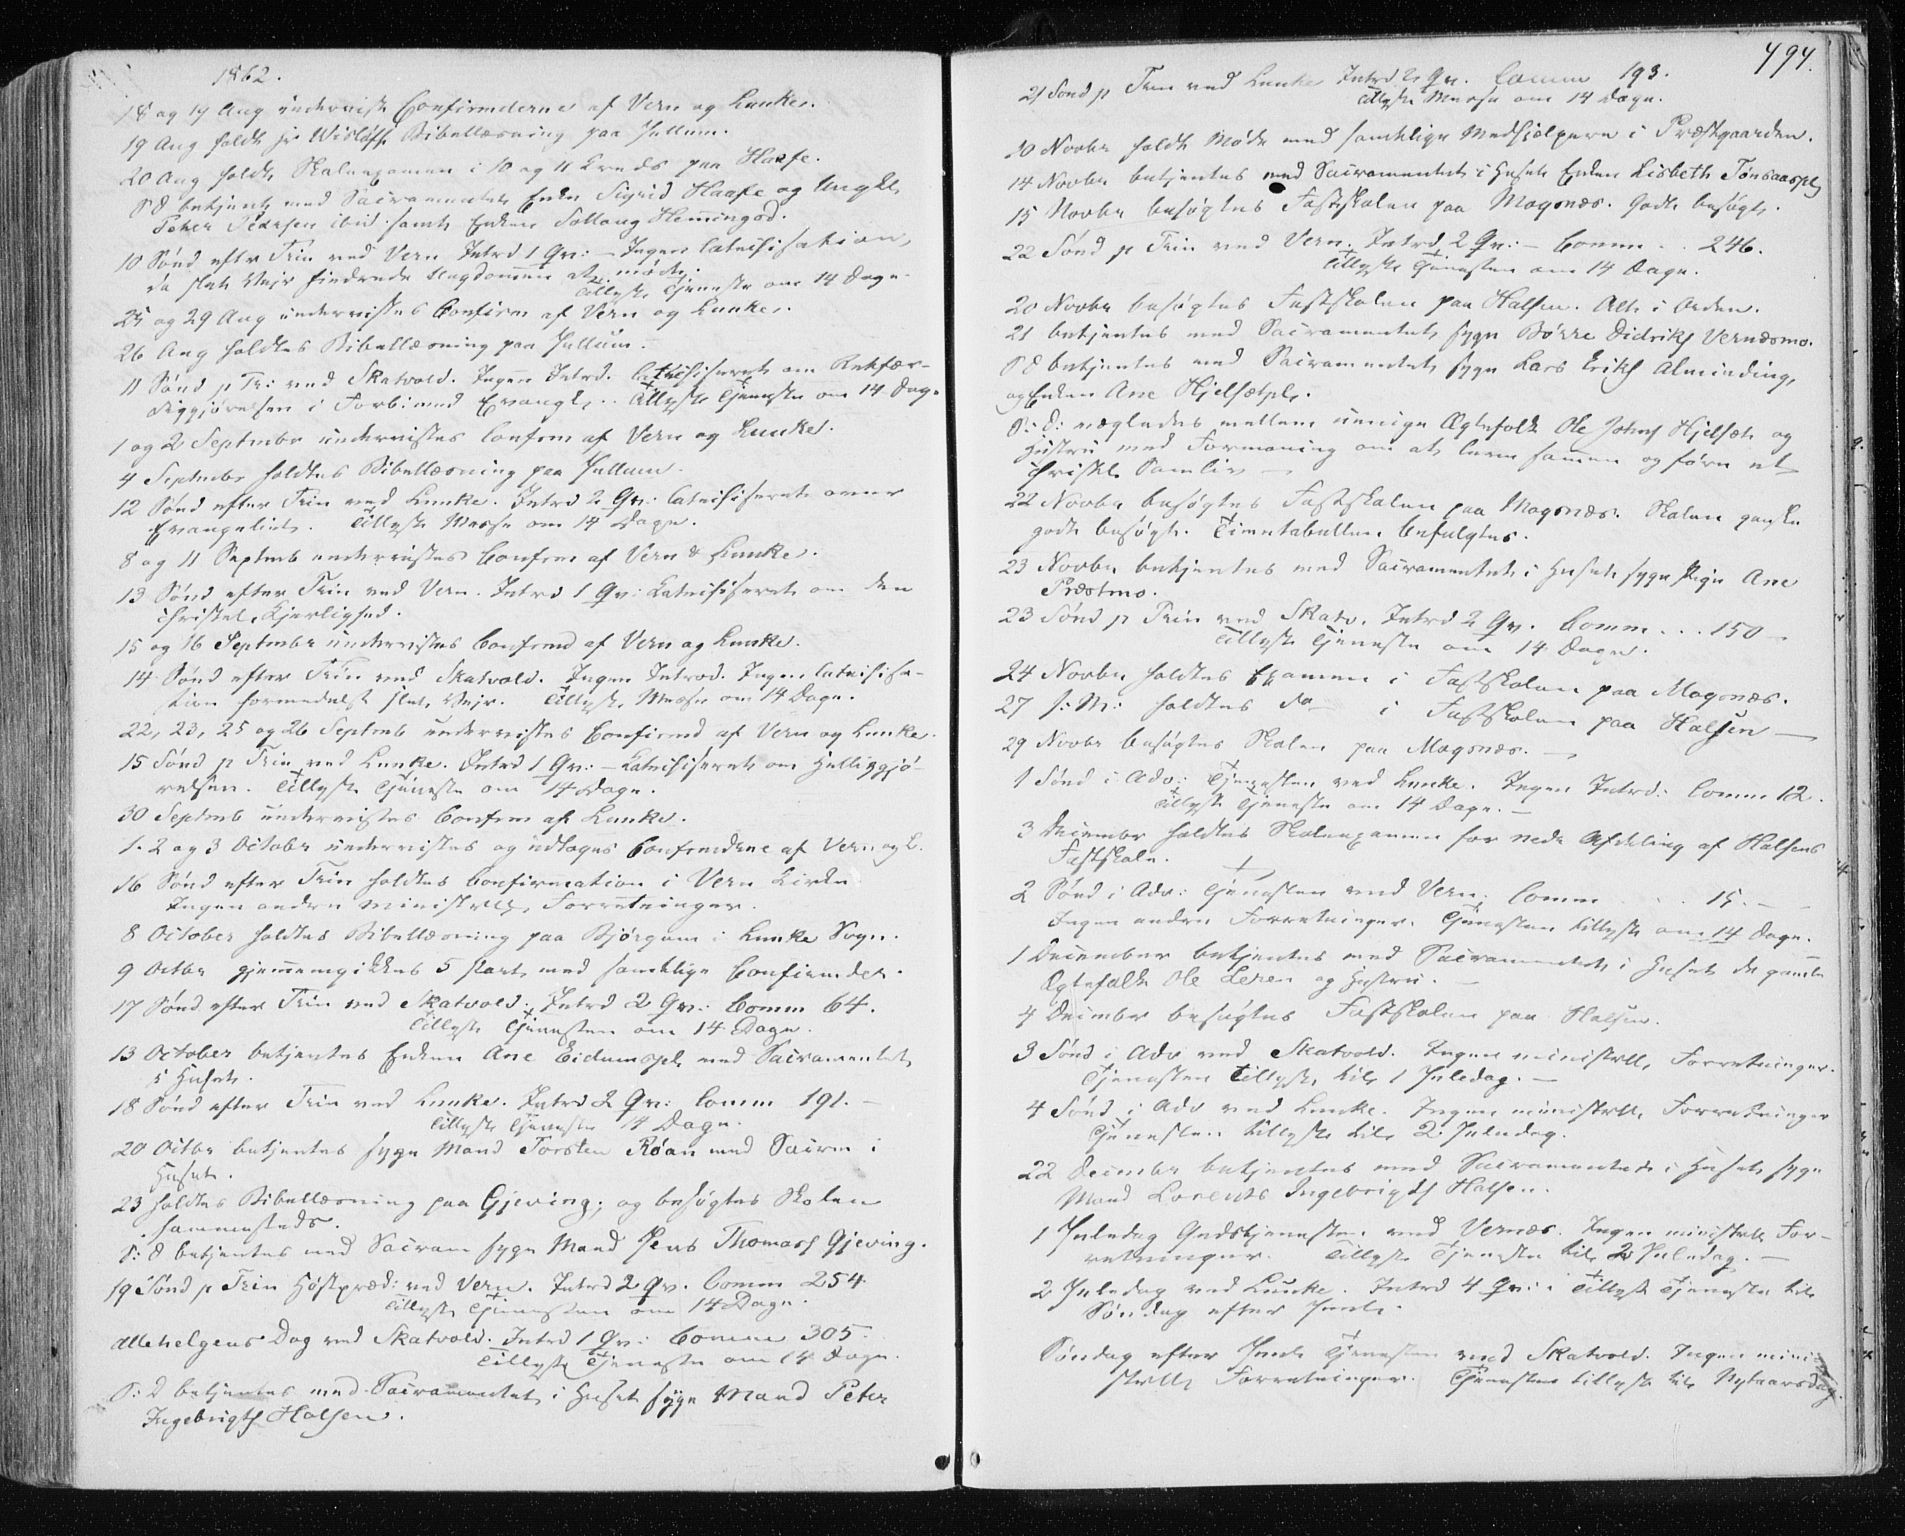 1862.
18 og 19 Aug underviste Confirmderne af Vern og Lunke.
19 Aug holdt Hr Wisløff Bibellæsning paa Hullum.
20 Aug holdt Skoleexamen i 10 og 11 Kreds paa Haafe.
S D betjent med Sacramentet Enke Sigrid Haafe og Ungkl
Peter Pedersen ibid samt Enken Solloug Hemmingsd.
10 Sønd efter Trin ved Vern Introd 1 Qv: – Ingen Catechisation,
da slet Veir hindrede Ungdommen at møde.
Tillyste Tjeneste om 14 Dage.
25 og 29 Aug undervistes Confirm af Vern og Lunke.
26 Aug holdtes Bibellæsning paa Hullum.
11 Sønd p Tr: ved Skatvold. Ingen Introd. Cathechiseret om Retfær-
diggjørelsen i Forbi med Evangel. Tillyste Tjeneste om 14 Dage
1 og 2 Septembr undervistes Confirm af Vern og Lunke.
4 Septembr holdtes Bibellæsning paa Hullum.
12 Sønd efter Trin ved Lunke. Introd 2 Qv: Catechiseret over
Evangeliet. Tillyste Messe om 14 Dage.
8 og 11 Septmb undervistes Confirm af Vern & Lunke.
13 Sønd efter Trin ved Vern. Introd 1 Qv: Catechiseret om den
christel. Kjerlighed.
15 og 16 Septmbr undervistes Confirmd af Vern og Lunke.
14 Sønd efter Trin ved Skatvold. Ingen Introd. Ingen Catechisa-
tion formedelst slet Vejr. Tillyste Messe om 14 Dage.
22, 23, 25 og 26 Septmb undervistes Confirmd af Vern og Lunke.
15 Sønd p Trin ved Lunke. Introd 1 Qv: – Catechiseret om Helliggjø-
relsen. Tillyste Tjeneste om 14 Dage.
30 Septmb undervistes Confirm af Lunke.
1. 2 og 3 Octobr undervistes og udtoges Confirmderne af Vern og L.
16 Sønd efter Trin holdtes Confirmation i Vern Kirke
Ingen andre ministrelle Forretninger.
8 October holdtes Bibellæsning paa Bjørgum i Lunke Sogn.
9 Octbr gjennemgikkes 5 Part med samtlige Confirmder.
17 Sønd efter Trin ved Skatvold. Introd 2 Qv: Comm 64.
Tillyste Tjenesten om 14 Dage.
13 October betjentes Enken Ane Eidumspl med Sacramentet
i Huset.
18 Sønd efter Trin ved Lunke. Introd 2 Qv: Comm 191. –
Tillyste Tjeneste 14 Dage.
20 Octbr betjentes syge Mand Torsten Røan med Sacrm i
Huset.
23 holdtes Bibellæsning paa Gjeving; og besøgtes Skolen
sammesteds.
S: D betjentes med Sacram syge Mand Jens Thomass Gjeving.
19 Sønd p Trin Høstpræd: ved Vern. Introd 2 Qv. Comm 254.
Tillyste Tjenesten om 14 Dage.
Allehelgens Dag ved Skatvold. Introd 1 Qv: Comm 305.
Tillyste Tjeneste om 14 Dage.
S: D betjentes med Sacramentet i Huset syge Mand Peter
Ingebrigts Halsen.
494.
21 Sønd p Trin ved Lunke Introd 2 Qv. Comm 193.
Tillyste Messe om 14 Dage.
10 Novbr holdt Møde med samtlige Medhjælpere i Præstgaarden.
14 Novbr betjentes med Sacramentet i Huset Enken Lisbeth Tønsaaspl
15 Novbr besøgtes Fastskolen paa Mogsnæs. Godt besøgt.
22 Sønd p Trin ved Vern. Introd 2 Qv: – Comm .. 246.
Tillyste Tjenesten om 14 Dage.
20 Novbr besøgtes Fastskolen paa Halsen. Alt i Orden.
21 betjentes med Sacramentet syge Børre Didriks Vernæsmo.
S D betjentes med Sacramentet syge Lars Eriks Alminding,
og Enken Ane Hjelsetpl.
S: D: mægledes mellem uenige Ægtefolk Ole Johns Hjelset og
Hustru med Formaning om at leve sammen og føre et
christel Samliv –
22 Novbr besøgtes Fastskolen paa Mogsnæs. Skolen ganske
godt besøgt. Timetabellen befulgtes.
23 Novbr betjentes med Sacramentet i Huset syge Pige Ane
Præstmo.
23 Sønd p Trin ved Skatv. Introd 2 Qv. Comm ... 150 –
Tillyste Tjeneste om 14 Dage.
24 Novbr holdtes Examen i Fastskolen paa Mogsnæs.
27 s: M: holdtes do i Fastskolen paa Halsen –
29 Novbr besøgtes Skolen paa Mogsnæs. –
1 Sønd i Adv: Tjenesten ved Lunke. Ingen Introd: Comm 12.
Tillyste Tjeneste om 14 Dage. –
3 Decembr holdtes Skoleexamen for nedr Afdeling af Halsens
Fastskole.
2 Sønd i Adv: Tjenesten ved Vern. Comm . . . 15. –
Ingen andre Forretninger. Tjenesten tillyst om 14 Dage.
1 December betjentes med Sacramentet i Huset de gamle
Ægtefolk Ole Leren og Hustru. –
4 Decembr besøgtes Fastskolen paa Halsen.
3 Sønd i Adv ved Skatvold. Ingen ministrelle Forretninger.
Tjenesten tillyst til 1 Juledag. –
4 Sønd i Adv ved Lunke. Ingen ministrelle Forretninger
Tjenesten tillyst til 2. Juledag.
22 Decembr betjentes med Sacramentet i Huset syge
Mand Lorents Ingebrigts Halsen.
1 Juledag Gudstjenesten ved Vernæs. Ingen ministrelle For-
retninger. Tillyste Tjeneste til 2 Juledag. –
2 Juledag ved Lunke. Introd 4 Qv: Tillyst Tjeneste til
Søndag efter Juul.
Søndag efter Juul Tjenesten ved Skatvold. Ingen mini
strelle Forretninger. Tjenesten tillyst til Nytaarsdag